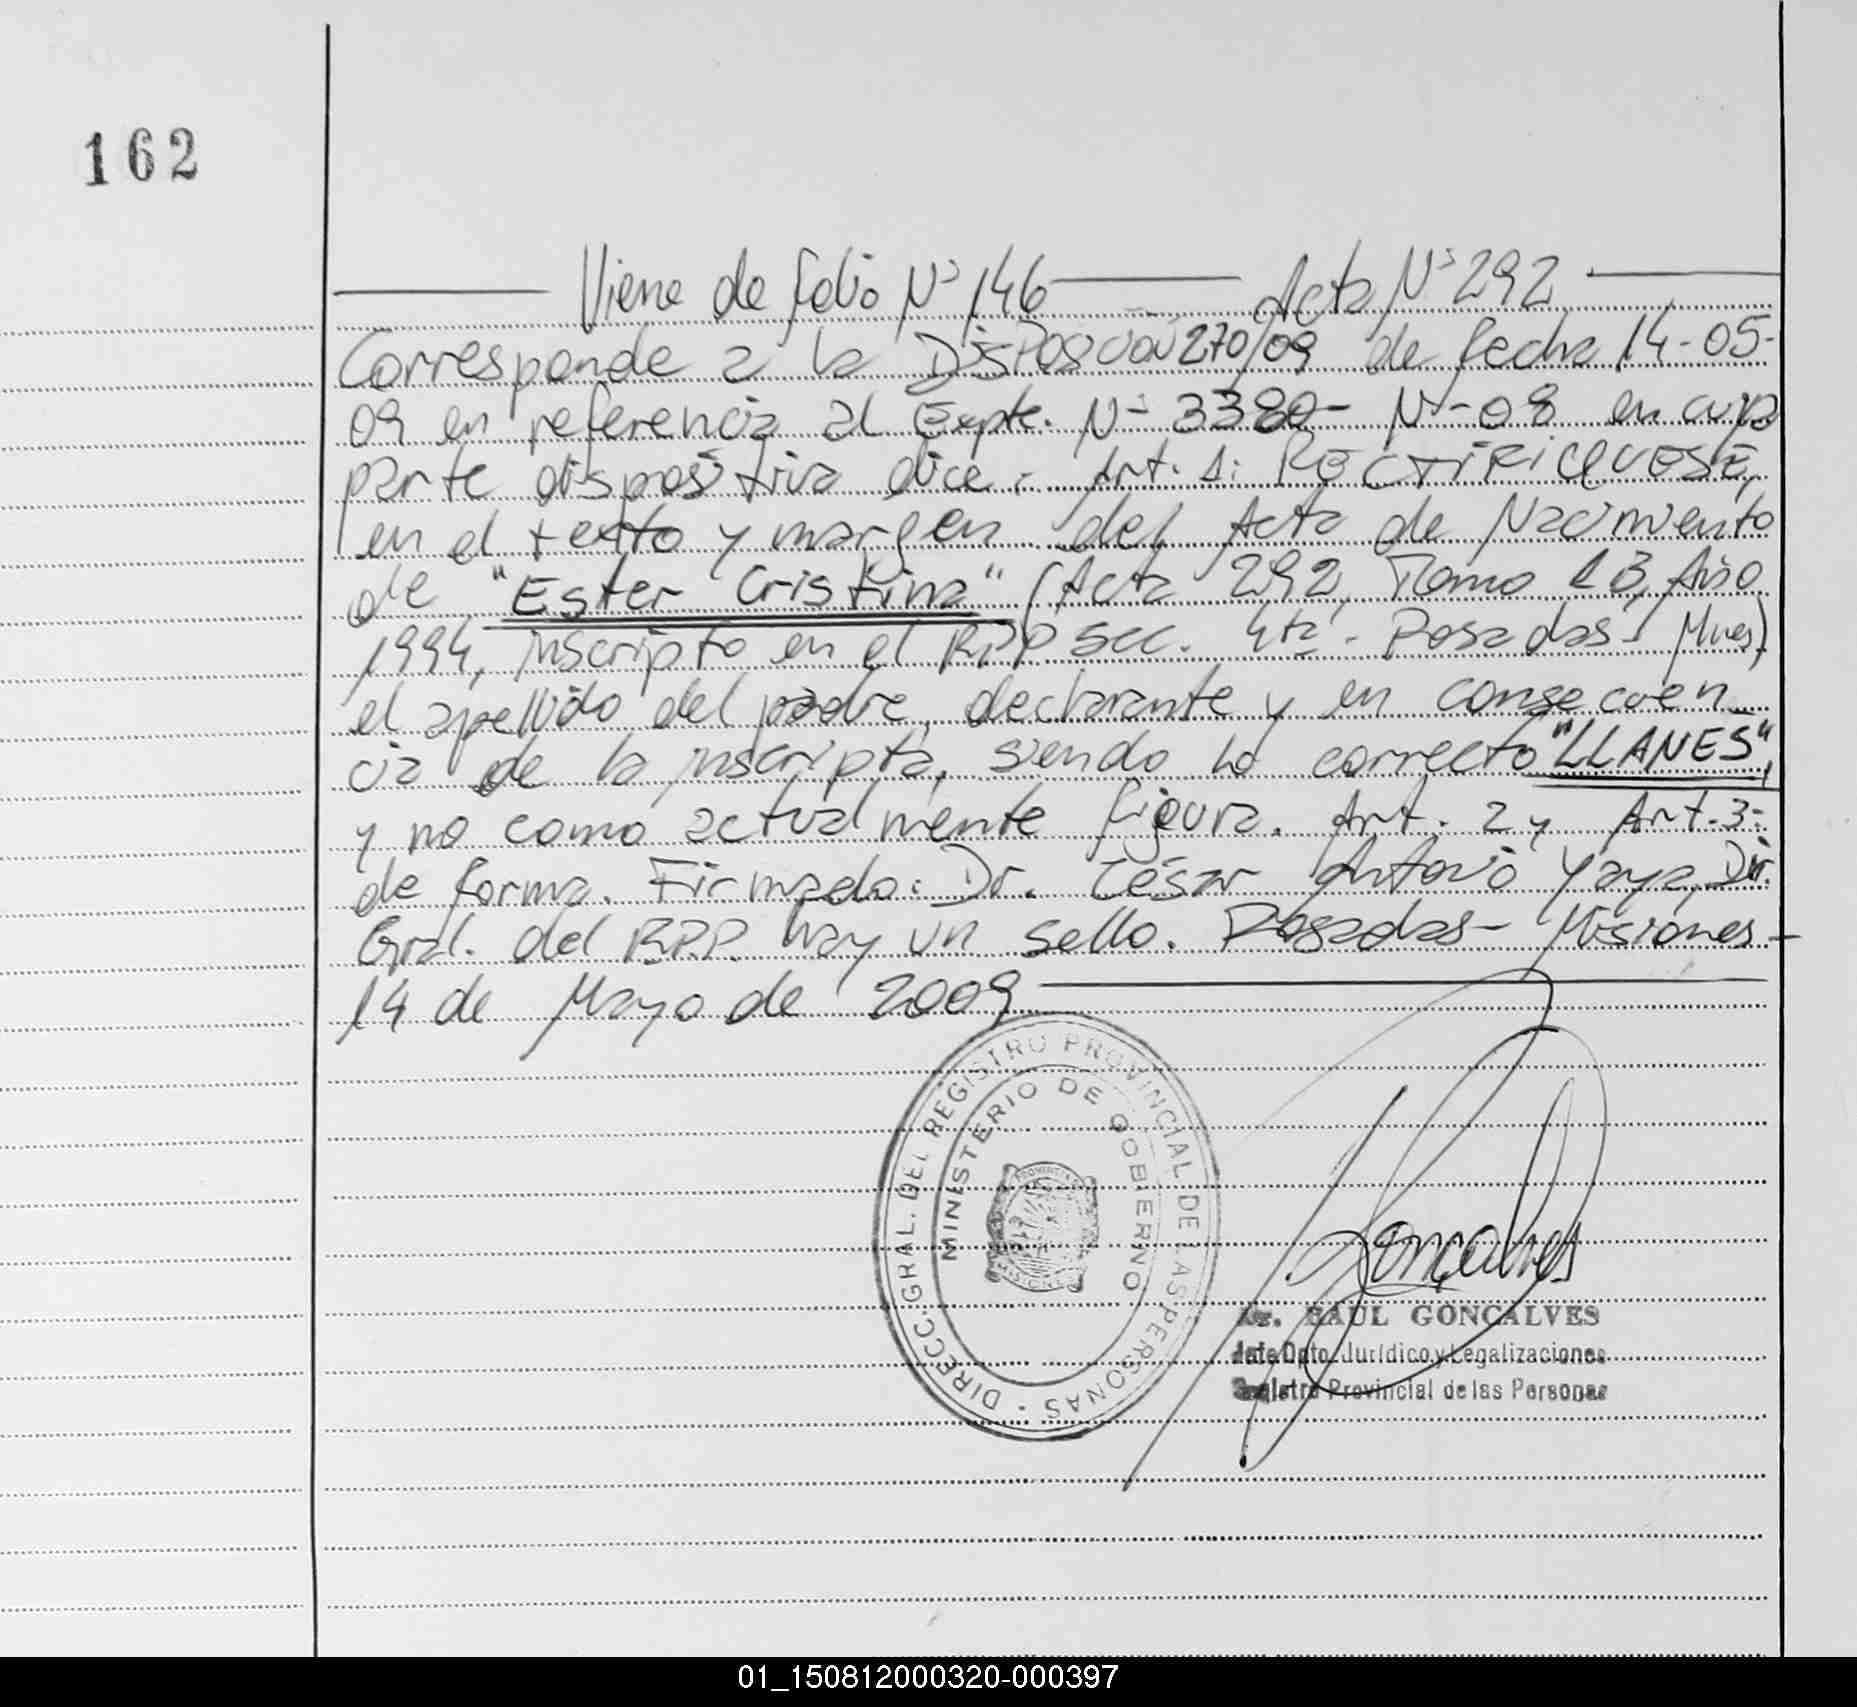 162
Viene de folio N° 146 Acta N° 292
Corresponde a la Disposición 270/09 de fecha 14-05-
09 en referencia al Expte. N- 3380- N-08 en cuya
parte dispositiva dice: Art. 1: RECTIFIQUESE,
en el texto y margen del Acta de Nacimiento
de "Ester Cristina" (Acta 292, Tomo 1B, Año
1994, inscripto en el RPP Sec. 4ta - Posadas - Mnes)
el apellido del padre, declarante y en consecuen
cia de la inscripta, siendo lo correcto "LLANES",
y no como actualmente figura. Art. 2 y Art. 3:
de forma. Firmado: Dr. César Antonio Yaya, Dir.
Gral. del R.P.P. hay un sello. Posadas - Misiones -
14 de Mayo de 2009
DIRECC. GRAL. DEL REGISTRO PROVINCIAL DE LAS PERSONAS -
MINISTERIO DE GOBIERNO
Goncalves
RAUL GONCALVES
Jefe Dpto. Jurídico y Legalizaciones
Registro Provincial de las Personas
01_150812000320-000397